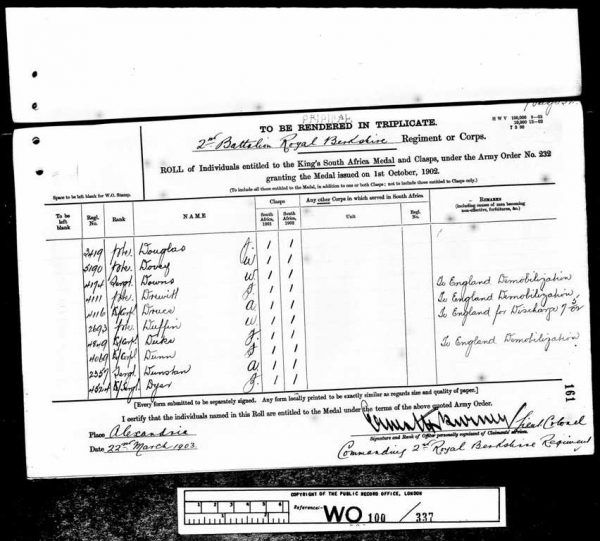 ORIGINAL
TO BE RENDERED IN TRIPLICATE.
H W V 100,000 9—02
10,000 12—02
2nd Battalion Royal Berkshire Regiment or Corps.
ROLL of Individuals entitled to the King's South Africa Medal and Clasps, under the Army Order No. 232
granting the Medal issued on 1st October, 1902.
Space to be left blank for W.O. Stamp.
(To include all those entitled to the Medal, in addition to one or both Clasps; not to include those entitled to Clasps only.)
To be left blank
Regl. No.
Rank
NAME
Clasps
South Africa, 1901
South Africa, 1902
Any other Corps in which served in South Africa
Unit
Regl. No.
REMARKS
(including causes of men becoming non-effective, forfeitures, &c.)
2419 Pte. Douglas J. 1 1
5190 Pte. Dovey W 1 1
4174 Sergt Downs W 1 1 To England Demobilization
4111 Pte. Drewitt J. 1 1 To England Demobilization
4116 Druce A 1 1 To England for Discharge
2693 Pte Duffin W 1 1
4849 Duke J. 1 1 To England Demobilization
4069 Dunn 1 1
2357 Sergt. Dunstan A 1 1
4524 Dyer J. 1 1
[Every form submitted to be separately signed. Any form locally printed to be exactly similar as regards size and quality of paper.]
161
I certify that the individuals named in this Roll are entitled to the Medal under the terms of the above quoted Army Order.
Place Alexandria
Lieut Colonel
Signature and Rank of Officer personally cognisant of Claimants' services.
Date 22nd March 1903.
Commanding 2nd Royal Berkshire Regiment
COPYRIGHT OF THE PUBLIC RECORD OFFICE, LONDON
Reference:-
WO 100 / 337